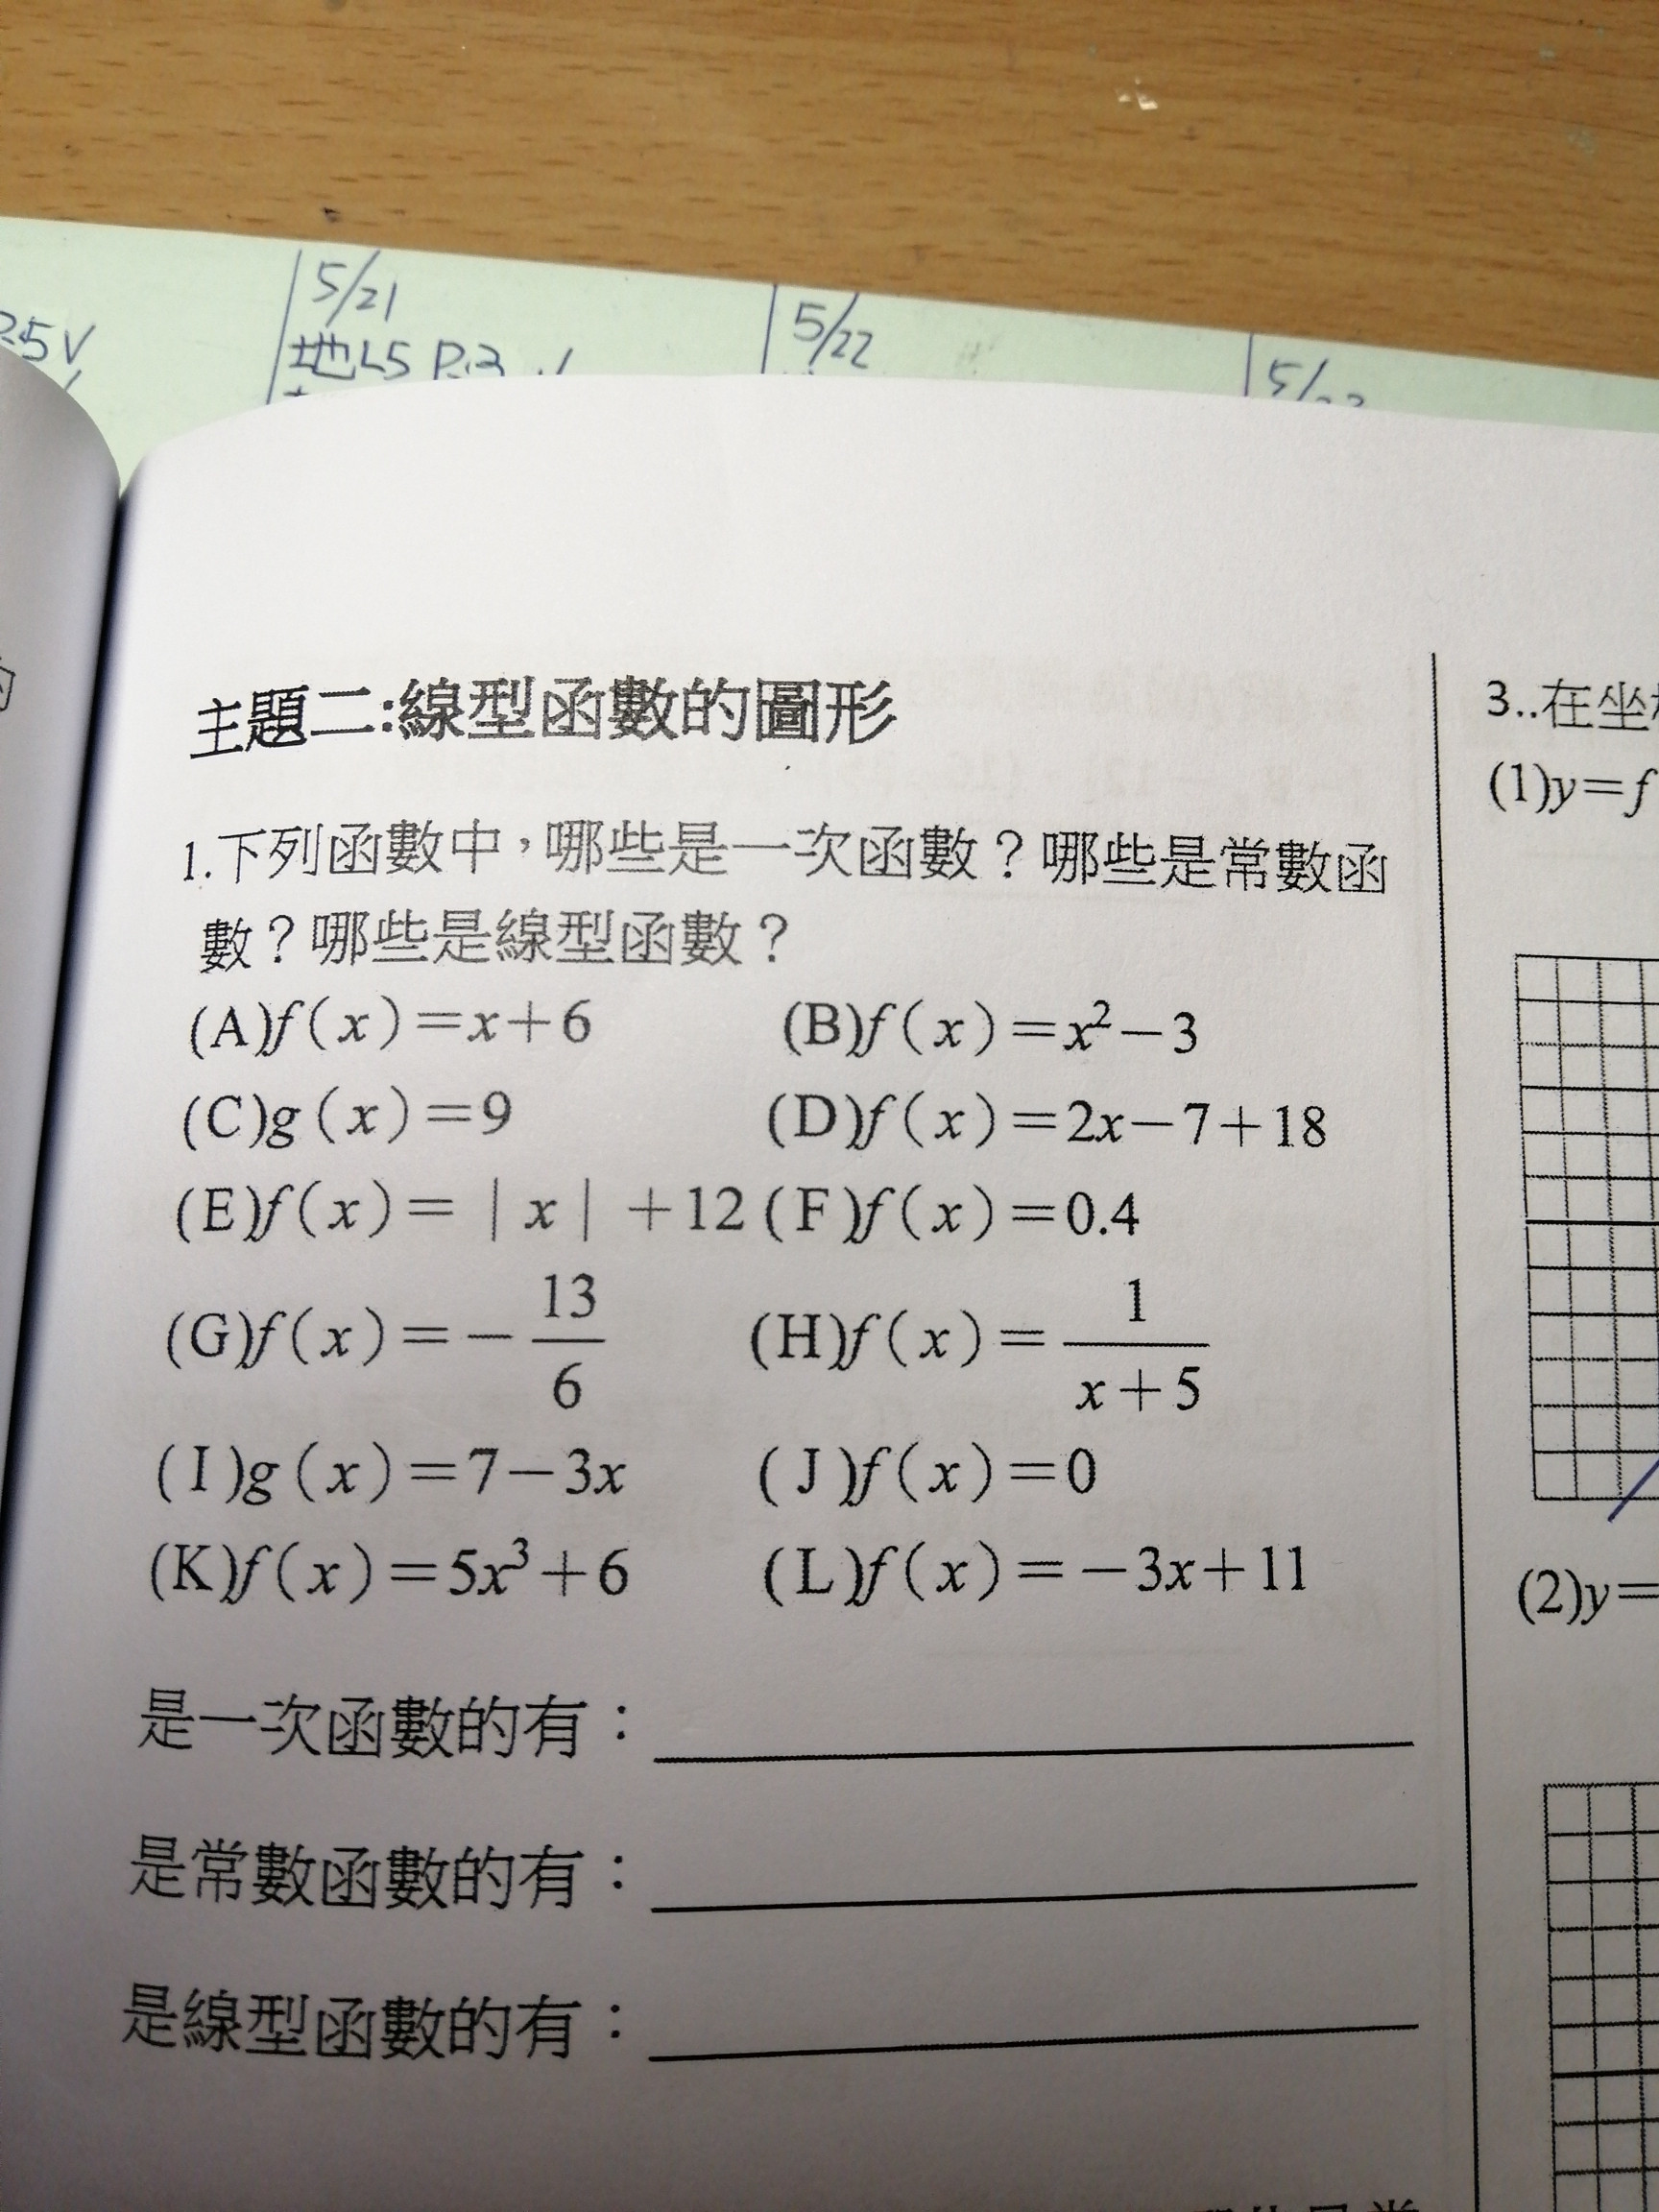 5/21
5/22
地L5 P.3
主題二:線型函數的圖形
1.下列函數中,哪些是一次函數?哪些是常數函
數?哪些是線型函數?
(A)f(x)=x+6 (B)f(x)=x²-3
(C)g(x)=9 (D)f(x)=2x-7+18
(E)f(x)=|x|+12 (F)f(x)=0.4
(G)f(x)=-13/6 (H)f(x)=1/(x+5)
(I)g(x)=7-3x (J)f(x)=0
(K)f(x)=5x³+6 (L)f(x)=-3x+11
是一次函數的有:
是常數函數的有:
是線型函數的有:
3..在坐
(1)y=f
(2)y=